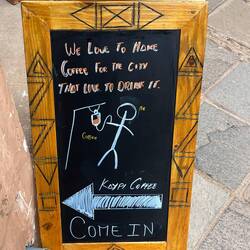 WE LOVE TO MAKE
COFFEE FOR THE CITY
THAT LOVE TO DRINK IT.
ME
COFFEE
KAYPY COFFEE
COME IN